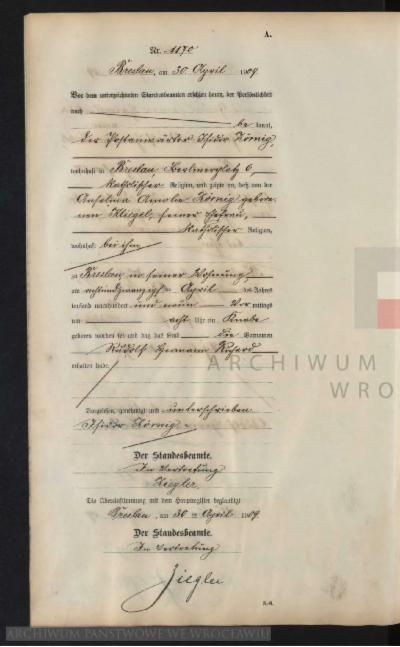 A.
Nr. 1170
Breslau, am 30 April 1909
Vor dem unterzeichneten Standesbeamten erschien heute, der Persönlichkeit
nach
be kannt,
der Postanwärter Isidor Hörnig,
wohnhaft in Breslau, Berlinerplatz 6,
katholischer Religion, und zeigte an, daß von der
Amalie Hörnig gebore-
nen Kliegel, seiner Ehefrau,
katholischer Religion,
wohnhaft bei ihm
zu Breslau in seiner Wohnung,
am achtundzwanzigsten April des Jahres
tausend neunhundert und neun Vor mittags
um acht Uhr ein Knabe
geboren worden sei und daß das Kind die Vornamen
Rudolf Hermann
erhalten habe.
Vorgelesen, genehmigt und unterschrieben
Isidor Hörnig
Der Standesbeamte.
In Vertretung
Ziegler.
Die Übereinstimmung mit dem Hauptregister beglaubigt
Breslau, am 30 ten April 1909.
Der Standesbeamte.
In Vertretung
Ziegler
ARCHIWUM
WRO
ARCHIWUM PAŃSTWOWE WE WROCŁAWIU